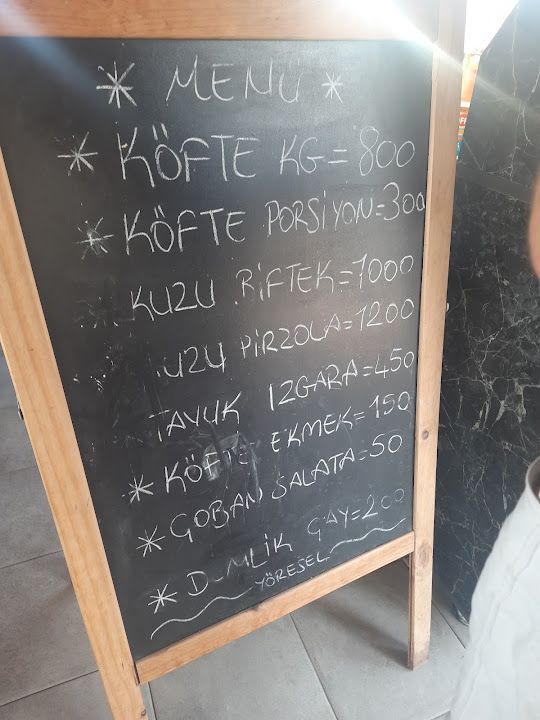 * MENÜ *
* KÖFTE KG=800
* KÖFTE PORSİYON=300
KUZU BİFTEK=1000
KUZU PİRZOLA=1200
TAVUK IZGARA=450
* KÖFTE EKMEK=150
* ÇOBAN SALATA=50
* DEMLİK ÇAY=200
YÖRESEL